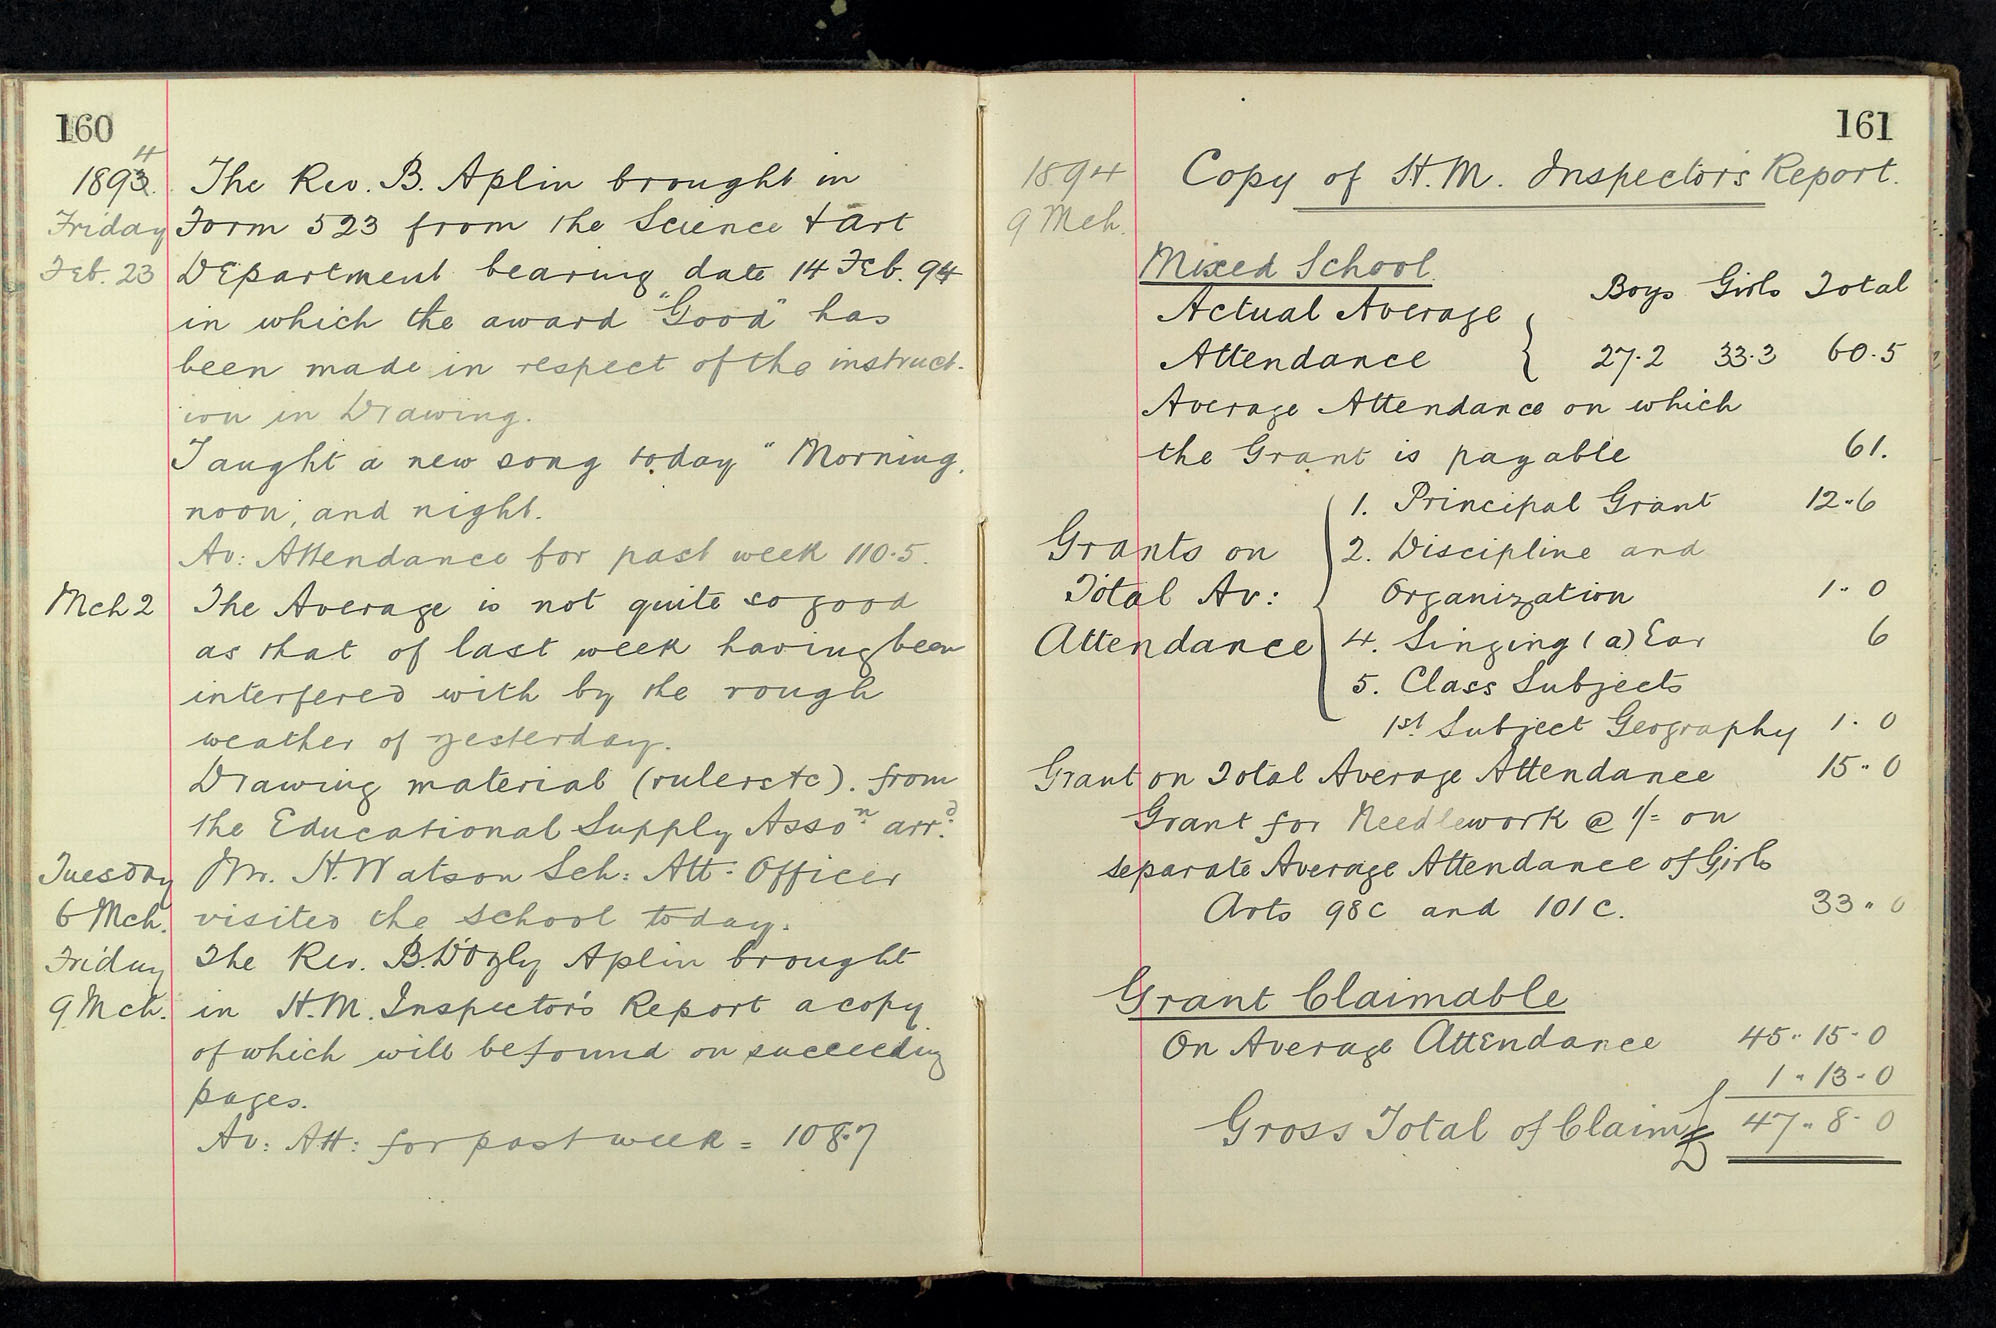 160
1894
The Rev. B. Aplin brought in
Friday
Form 523 from the Science & Art
Feb. 23
Department bearing date 14 Feb. 94
in which the award "Good" has
been made in respect of the instruct-
ion in Drawing.
Taught a new song today "Morning,
noon, and night.
Av: Attendance for past week 110.5.
Mch 2
The Average is not quite so good
as that of last week having been
interfered with by the rough
weather of yesterday.
Drawing material (rulers &c). from
the Educational Supply Asson. arrd.
Tuesday
Mr. H. Watson Sch: Att: Officer
6 Mch.
visited the school today.
Friday
The Rev. B. D'Oyly Aplin brought
9 Mch.
in H.M. Inspector's Report a copy
of which will be found on succeeding
pages.
Av: Att: for past week = 108.7
161
1894
Copy of H.M. Inspector's Report.
9 Mch.
Mixed School.
Boys Girls Total
Actual Average
Attendance 27.2 33.3 60.5
Average Attendance on which
the Grant is payable 61.
Grants on
Total Av:
Attendance
1. Principal Grant 12 " 6
2. Discipline and
Organization 1 " 0
4. Singing (a) Ear 6
5. Class Subjects
1st. Subject Geography 1 " 0
Grant on Total Average Attendance 15 " 0
Grant for Needlework @ 1/= on
separate Average Attendance of Girls
Arts 98c and 101c. 33 " 0
Grant Claimable
On Average Attendance 45 " 15 " 0
1 " 13 " 0
Gross Total of Claim £ 47 " 8 " 0